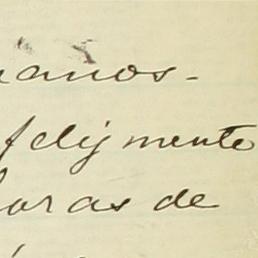 manos-
felizmente
horas de